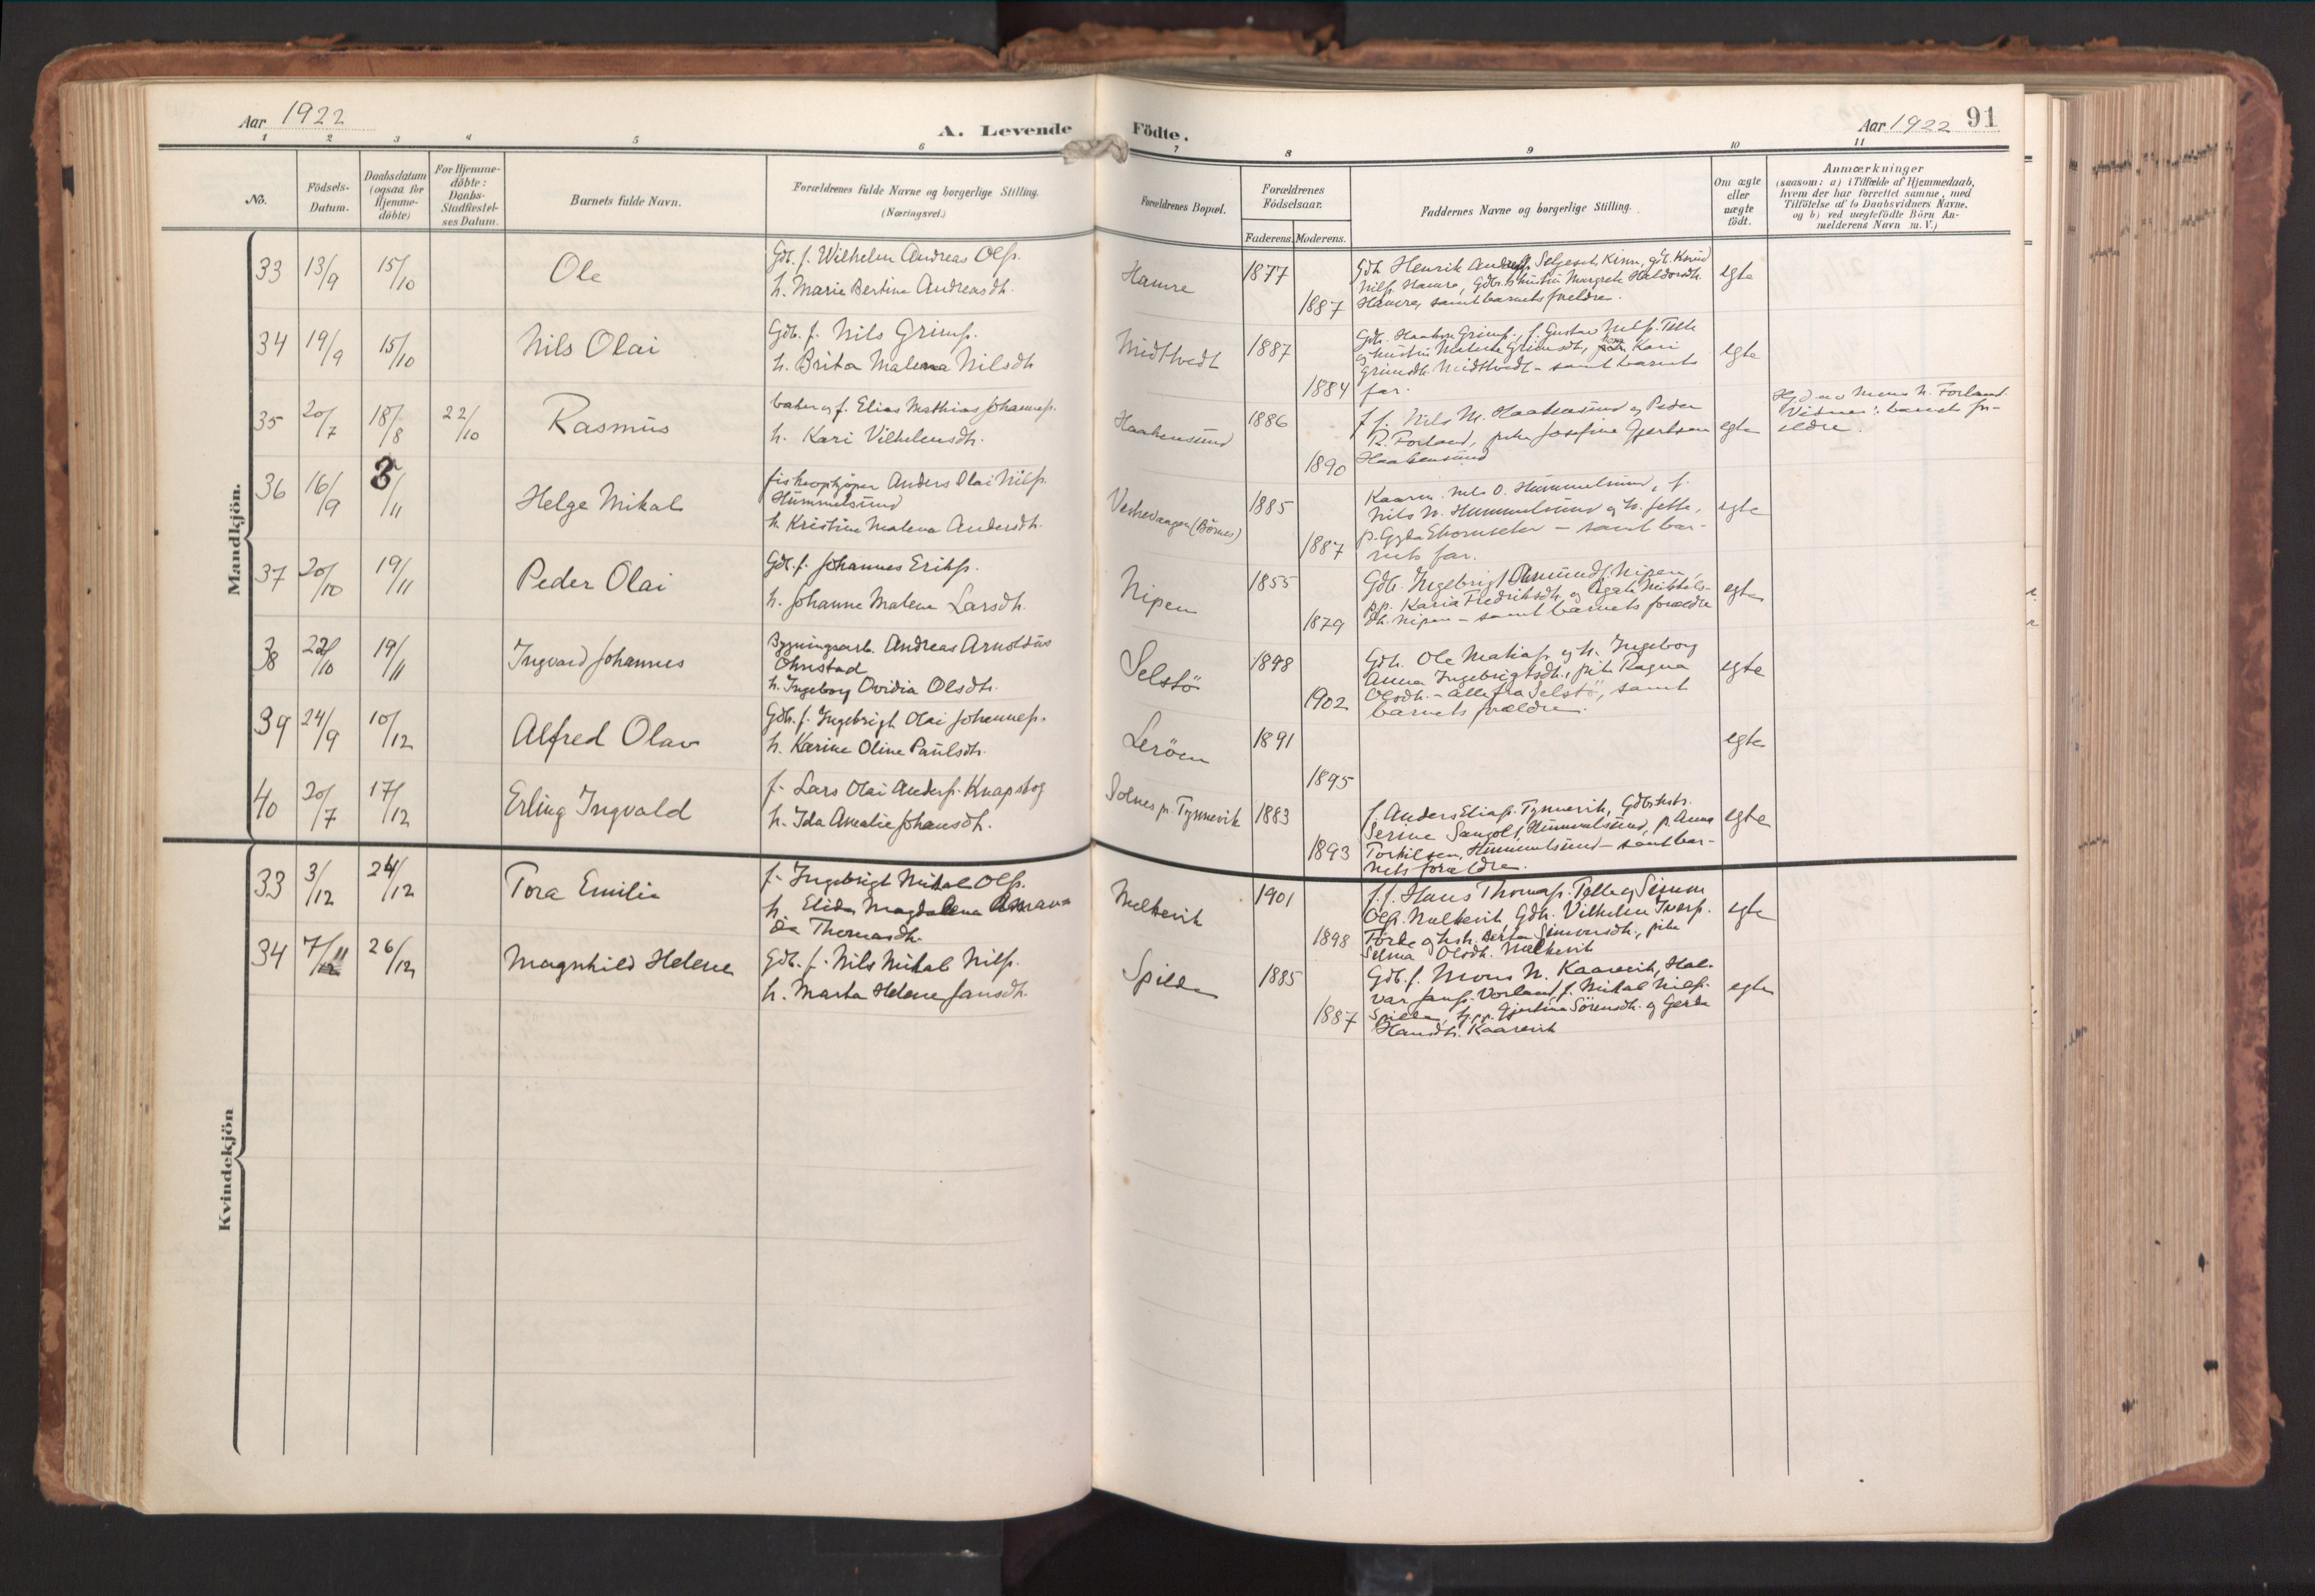 Aar 1922
A. Levende Födte.
Aar 1922 91
1 2 3 4 5 6 7 8 9 10 11
No.
Födsels-Datum.
Daabsdatum (ogsaa for Hjemme-döbte)
For Hjemme-döbte: Daabs-Stadfæstel-ses Datum.
Barnets fulde Navn.
Forældrenes fulde Navne og borgerlige Stilling.
(Næringsvei.)
Forældrenes Bopæl.
Forældrenes Födselsaar.
Faderens. Moderens.
Faddernes Navne og borgerlige Stilling.
Om ægte eller uægte födt.
Anmærkninger
(saasom: a) i Tilfælde af Hjemmedaab,
hvem der har forrettet samme, med
Tilföielse af to Daabsvidners Navne.
og b) ved uægtefödte Börn An-
melderens Navn m. V.)
Mandkjön.
33 13/9 15/10 Ole
Gdb. f. Wilhelm Andreas Olss.
h. Marie Bertine Andreasdh.
Hamre 1877 1887
Gdb. Henrik Anderss. Seljeset, Kinn, gdb. Knud
Nilss. Hamre, Gdbr.hustru Margrete Haldorsdh.
Hamre, samt barnets forældre.
egte
34 19/9 15/10 Nils Olai
Gdb. f. Nils Grimss.
h. Brita Malena Nilsdh
Midttvedt 1887 1884
Gdb. Haakon Grimss., f. Gustav Nilss. Telle
og hustru Malene Grimsdh, Kari
Grimsdh. Midttvedt - samt barnets
far.
egte
35 20/7 18/8 22/10 Rasmus
baker og f. Elias Mathias Johanness.
h. Kari Vilhelmsdh.
Haakensund 1886 1890
f.f. Nils M. Haakensund og Peder
R. Forland, pike Josefine Gjertsen
Haakensund
egte
Hj.d. av Mons N. Forland.
Vidner: barnets for-
eldre.
36 16/9 3/11 Helge Mikal
fiskeopkjøper Anders Olai Nilss.
Hummelsund
h. Kristine Malena Andersdh.
Vestrevaagen (Börnes) 1885 1887
Kaarm. Nils O. Hummelsund, f.
Nils N. Hummelsund og h. Jette,
p. Gyda Ekornseter - samt bar-
nets far.
egte
37 20/10 19/11 Peder Olai
Gdb. f. Johannes Erikss.
h. Johanne Malene Larsdh.
Nipen 1855 1879
Gdb. Ingebrigt Amunds. Nipen,
pp. Karia Fredriksdh. og Agate Mikkels-
dh. Nipen - samt barnets forældre
egte
38 22/10 19/11 Ingvard Johannes
Bygningsarb. Andreas Arnoldus
Ohnstad
h. Ingeborg Ovidia Olsdh.
Selstö 1898 1902
Gdb. Ole Matiass. og h. Ingeborg
Anna Ingebrigtsdh., pike Ragna
Olsdh. - alle fra Selstö, samt
barnets forældre.
egte
39 24/9 10/12 Alfred Olav
Gdb. f. Ingebrigt Olai Johanness.
h. Karine Oline Paulsdh.
Leröen 1891 1895
egte
40 20/7 17/12 Erling Ingvald
f. Lars Olai Anderss. Knapskog
h. Ida Amalie Johansdh.
Solnes p. Tynnevik 1883 1893
f. Anders Eliass. Tynnevik, Gdb.hstr.
Serine Sangolt, Hummelsund, p. Anna
Torkilsen, Hummelsund - samt bar-
nets forældre.
egte
Kvindekjön
33 3/12 24/12 Tora Emilie
f. Ingebrigt Mikal Olss.
h. Elida Magdalena
Thomasdh.
Nulkevik 1901 1898
f.f. Hans Thomass. Telle og Simon
Olss. Nulkevik, Gdb. Vilhelm Iverss.
Förde og hstr. Berta Simonsdh., pike
Selma Olsdh. Nulkevik
egte
34 7/11 26/12 Magnhild Helene
Gdb. f. Nils Mikal Nilss.
h. Marta Helene Jansdh.
Spilde 1885 1887
Gdb. f. Mons N. Kaarevik, Hal-
var Janss. Vorland, f. Mikal Nilss.
Spilde, pp. Gjertine Sörensdh. og Gerda
Hansdh. Kaarevik
egte